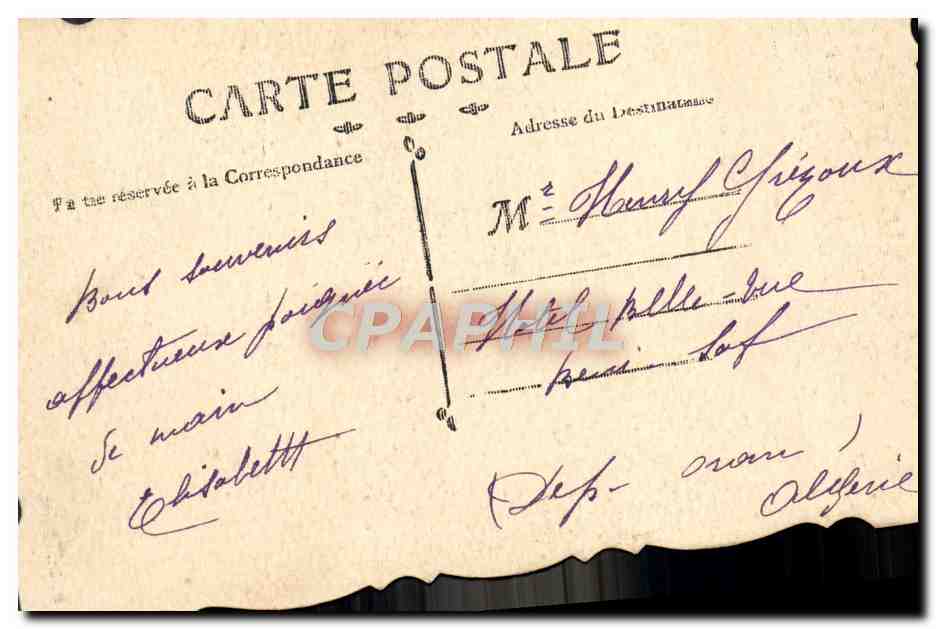 CARTE POSTALE
Partie réservée à la Correspondance
Adresse du Destinataire
Bons souvenirs
affectueux poignée
de main
Elisabeth
Mr Henry
Hotel Belle-Vue
Beni-Saf
(Dep- Oran)
Algérie
CPAPHIL